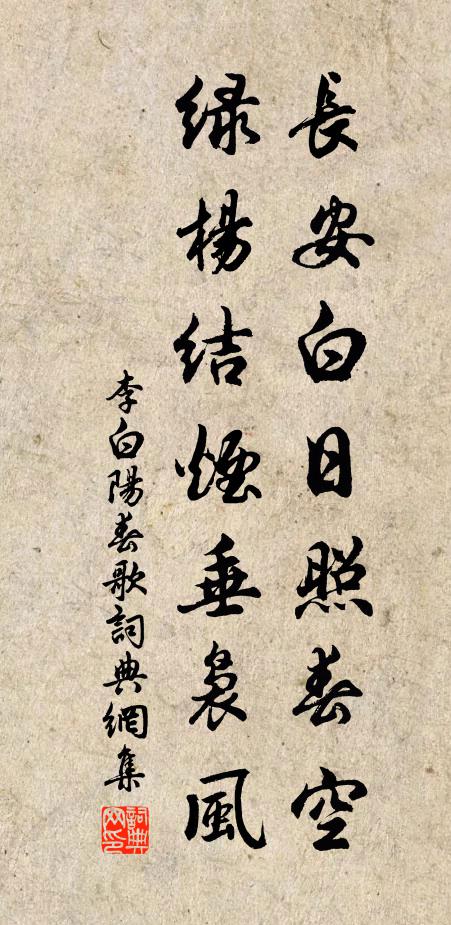 長安白日照春空
緑楊結煙垂裊風
李白陽春歌詞典網集
詞典网印